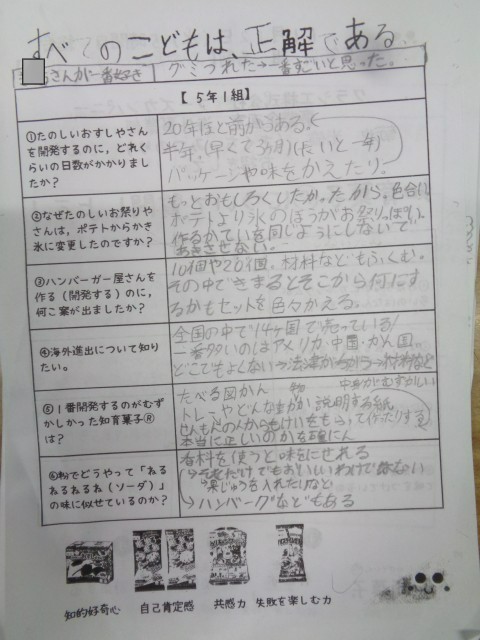 すべてのこどもは、正解である。
さんが一番好き
グミつれた→一番すごいと思った。
【5年1組】
①たのしいおすしやさん
を開発するのに、どれく
らいの日数がかかりまし
たか？
20年ほど前からある。
半年。(早くて3ヶ月)(だいたい一年)
パッケージや味をかえたり。
②なぜたのしいお祭りや
さんは、ポテトからかき
氷に変更したのですか？
もっとおもしろくしたか。たから。色合い
ポテトより氷のほうがお祭りっぽい。
作るかていを同じようにしないで
あきさせない。
③ハンバーガー屋さんを
作る（開発する）のに、
何こ案が出ましたか？
10個や20個。材料などもふくむ。
その中できまるとそこから何にす
るかもセットを色々かえる。
④海外進出について知り
たい。
全国の中で14ヶ国で売っている!
一番多いのはアメリカ、中国、かん国。
どこでもよくない→法津が
⑤1番開発するのがむず
かしかった知育菓子®
は？
たべる図かん
中身がむずかしい
トレーやどんな 説明する紙
せんもんの人からもけいをもらって作たりする
本当に正しいのかを
⑥粉でどうやって「ねる
ねるねるね（ソーダ）」
の味に似せているのか？
香料を使うと味をにせれる
→果じゅうを入れたりなど
→ハンバーグなどもある
知的好奇心
自己肯定感
共感力
失敗を楽しむ力